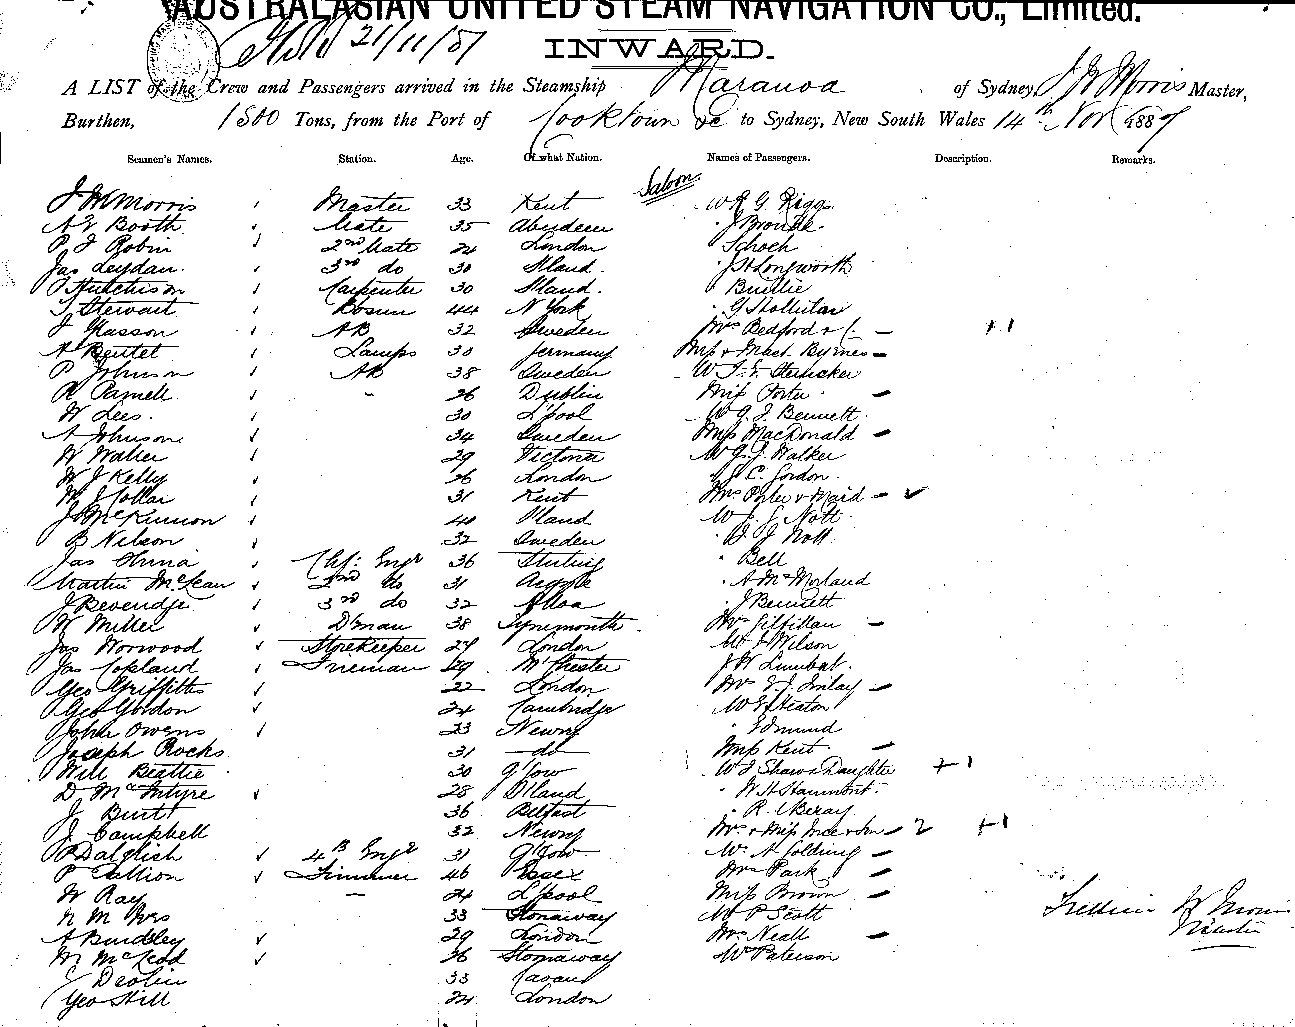 AUSTRALASIAN UNITED STEAM NAVIGATION CO., Limited.
21/11/87
INWARD.
A LIST of the Crew and Passengers arrived in the Steamship Maranoa of Sydney, J W Morris Master,
Burthen, 1500 Tons, from the Port of Cooktown &c to Sydney, New South Wales 14th Nov 1887
Seamen's Names. Station. Age. Of what Nation. Names of Passengers. Description. Remarks.
Saloon
J W Morris Master 33 Kent W R G Riggs
A Booth Mate 35 Aberdeen J
P J Robin 2nd Mate 24 London Schoch
Jas Leydan 3rd do 30 J H Longworth
Hutchison Carpenter 30
T Stewart Bosun 44 N York G
J Glasson AB 32 Sweden Mrs Bedford +1
A Beutel Lamps 30 Germany Miss & Mast Byrnes
P Johnson AB 38 Sweden W
R Parnell " 26 Dublin Miss Porter
W Lees 30 L'pool W G J Bennett
A Johnson 34 Sweden Miss MacDonald
W Walter 29 Victoria W J Walker
W J Kelly 26 London J C Gordon
W J Collar 31 Kent Mrs Porter & Maid
J McKinnon 40 W J J Nott
B Nilson 32 Sweden J Nott
Jas Chf: Engr 36 Stirling Bell
Martin McLean 2nd do 31 Argyle A McMorland
J Beveridge 3rd do 32 Alloa J Bennett
W Miller D'man 38 Tynemouth Mrs Gilfillan
Jas Norwood Storekeeper 27 London Mr J Wilson
Jas Copland Fireman 29 M'chester J W
Geo Griffiths 22 London Mrs Imlay
Geo Gordon 24 Cambridge W E Heaton
John Owens 23 Newry Edmund
Joseph Rocks 31 do Miss Kent
Will Beattie 30 G'low W J Shaw & Daughter +1
D McIntyre 28 W H
J 36 Belfast R
J Campbell 32 Newry Mrs & Miss 2 +1
P Dalglish 4th Engr 31 G'low Mrs A Golding
P Trimmer 46 Essex Mrs Park
W Ray " 24 L'pool Miss Brown
N M 33 Stornaway W P Scott
A Burdsley 29 London Mrs Neall
M McLeod 26 Stornaway W Paterson
J Devlin 33 Cavan
Geo Hill 24 London